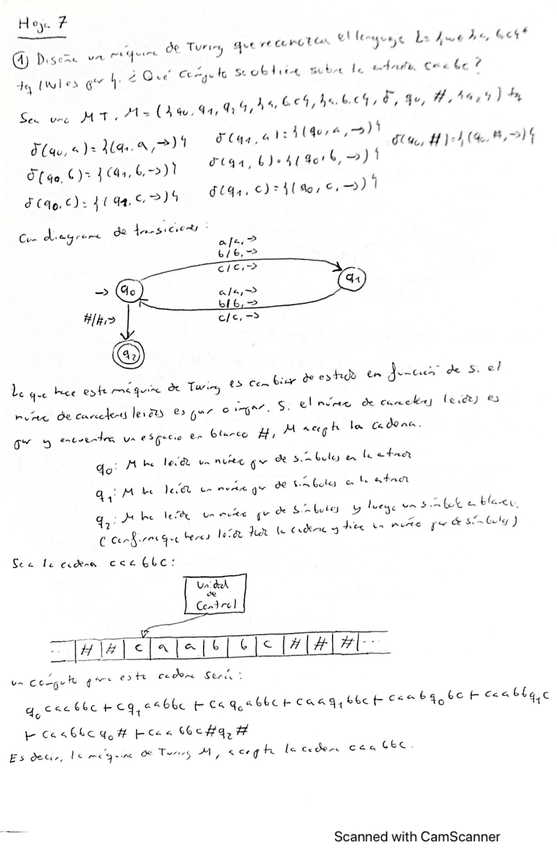 Hoja 7
① Diseña una máquina de Turing que reconozca el lenguaje L = {w ∈ {a, b, c}*
tq |w| es par}. ¿Qué cómputo se obtiene sobre la entrada caabbc?
Sea una MT, M = ({q0, q1, q2}, {a, b, c}, {a, b, c}, δ, q0, #, {q2}) tq
δ(q0, a) = {(q1, a, →)} δ(q1, a) = {(q0, a, →)} δ(q0, #) = {(q2, #, →)}
δ(q0, b) = {(q1, b, →)} δ(q1, b) = {(q0, b, →)}
δ(q0, c) = {(q1, c, →)} δ(q1, c) = {(q0, c, →)}
Con diagrama de transiciones:
a/a, →
b/b, →
c/c, →
→ q0
q1
a/a, →
b/b, →
c/c, →
#/#, →
q2
Lo que hace esta máquina de Turing es cambiar de estado en función de si el
número de caracteres leídos es par o impar. Si el número de caracteres leídos es
par y encuentra un espacio en blanco #, M acepta la cadena.
q0: M ha leído un número par de símbolos en la entrada
q1: M ha leído un número de símbolos en la entrada
q2: M ha leído un número par de símbolos y luego un símbolo en blanco.
(confirma que hemos leído toda la cadena y tiene un número par de símbolos)
Sea la cadena caabbc:
Unidad
de
Control
··· | # | # | c | a | a | b | b | c | # | # | # | ···
un cómputo para esta cadena sería:
q0caabbc ⊢ cq1aabbc ⊢ caq0abbc ⊢ caaq1bbc ⊢ caabq0bc ⊢ caabbq1c
⊢ caabbcq0# ⊢ caabbc#q2#
Es decir, la máquina de Turing M, acepta la cadena caabbc.
Scanned with CamScanner